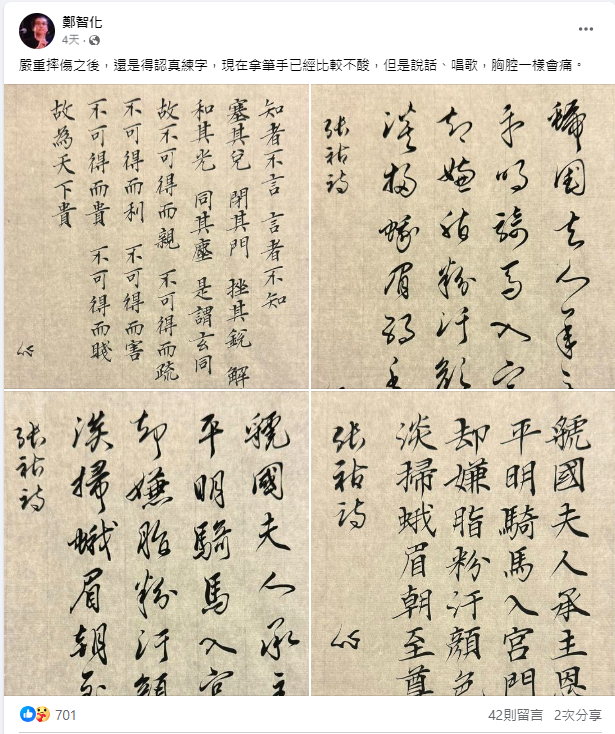 鄭智化
4天
嚴重摔傷之後，還是得認真練字，現在拿筆手已經比較不酸，但是說話、唱歌，胸腔一樣會痛。
知者不言 言者不知
塞其兌 閉其門 挫其銳 解
和其光 同其塵 是謂玄同
故不可得而親 不可得而疏
不可得而利 不可得而害
不可得而貴 不可得而賤
故為天下貴
虢國夫人承主
平明騎馬入宮
却嫌脂粉汙顏
淡掃蛾眉朝至
張祜詩
虢國夫人承主
平明騎馬入宮
却嫌脂粉汙顏
淡掃蛾眉朝至
張祜詩
虢國夫人承主恩
平明騎馬入宮門
却嫌脂粉汙顏色
淡掃蛾眉朝至尊
張祜詩
701
42則留言 2次分享